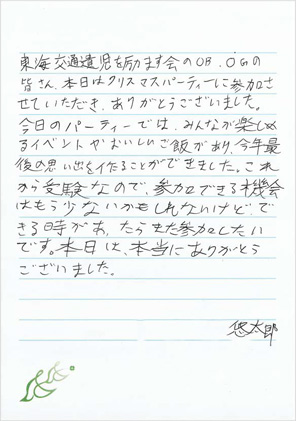 東海交通遺児を励ます会のOB.OGの
皆さん、本日はクリスマスパーティーに参加さ
せていただき、ありがとうございました。
今日のパーティーでは、みんなが楽しめ
るイベントやおいしいご飯があり、今年最
後の思い出を作ることができました。これ
から受験なので、参加できる機会
はもう少ないかもしれないけど、で
きる時があったらまた参加したい
です。本日は、本当にありがとう
ございました。
悠太郎